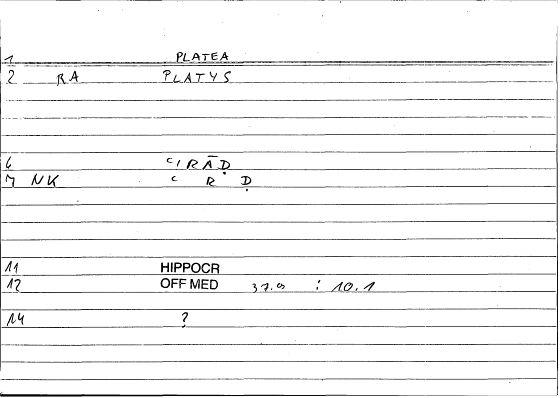 1 PLATEA
2 RA PLATYS
6 ʿIRĀḌ
7 NK ʿ R Ḍ
11 HIPPOCR
12 OFF MED 37.9 : 10.1
14 ?